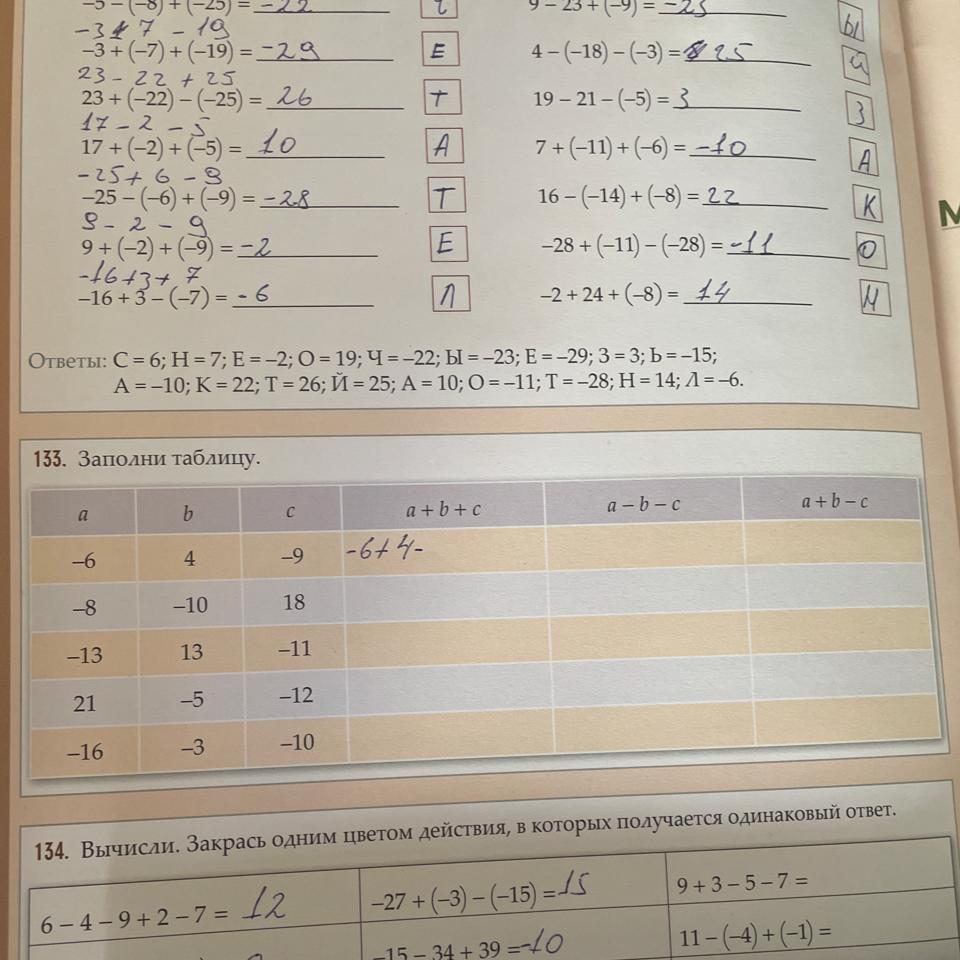 –5 – (–8) + (–25) = -22 Ч 9 – 23 + (–9) = -23 Ы
-3 7 - 19
–3 + (–7) + (–19) = -29 Е 4 – (–18) – (–3) = 25 Й
23 - 22 + 25
23 + (–22) – (–25) = 26 Т 19 – 21 – (–5) = 3 З
17 - 2 - 5
17 + (–2) + (–5) = 10 А 7 + (–11) + (–6) = -10 А
-25 + 6 - 9
–25 – (–6) + (–9) = -28 Т 16 – (–14) + (–8) = 22 К
9 - 2 - 9
9 + (–2) + (–9) = -2 Е –28 + (–11) – (–28) = -11 О
-16 + 3 + 7
–16 + 3 – (–7) = -6 Л –2 + 24 + (–8) = 14 Н
Ответы: С = 6; Н = 7; Е = –2; О = 19; Ч = –22; Ы = –23; Е = –29; З = 3; Ь = –15;
А = –10; К = 22; Т = 26; Й = 25; А = 10; О = –11; Т = –28; Н = 14; Л = –6.
М
133. Заполни таблицу.
a b c a + b + c a – b – c a + b – c
–6 4 –9 -6+4-
–8 –10 18
–13 13 –11
21 –5 –12
–16 –3 –10
134. Вычисли. Закрась одним цветом действия, в которых получается одинаковый ответ.
6 – 4 – 9 + 2 – 7 = 12 –27 + (–3) – (–15) = -15 9 + 3 – 5 – 7 =
–15 – 34 + 39 = -10 11 – (–4) + (–1) =